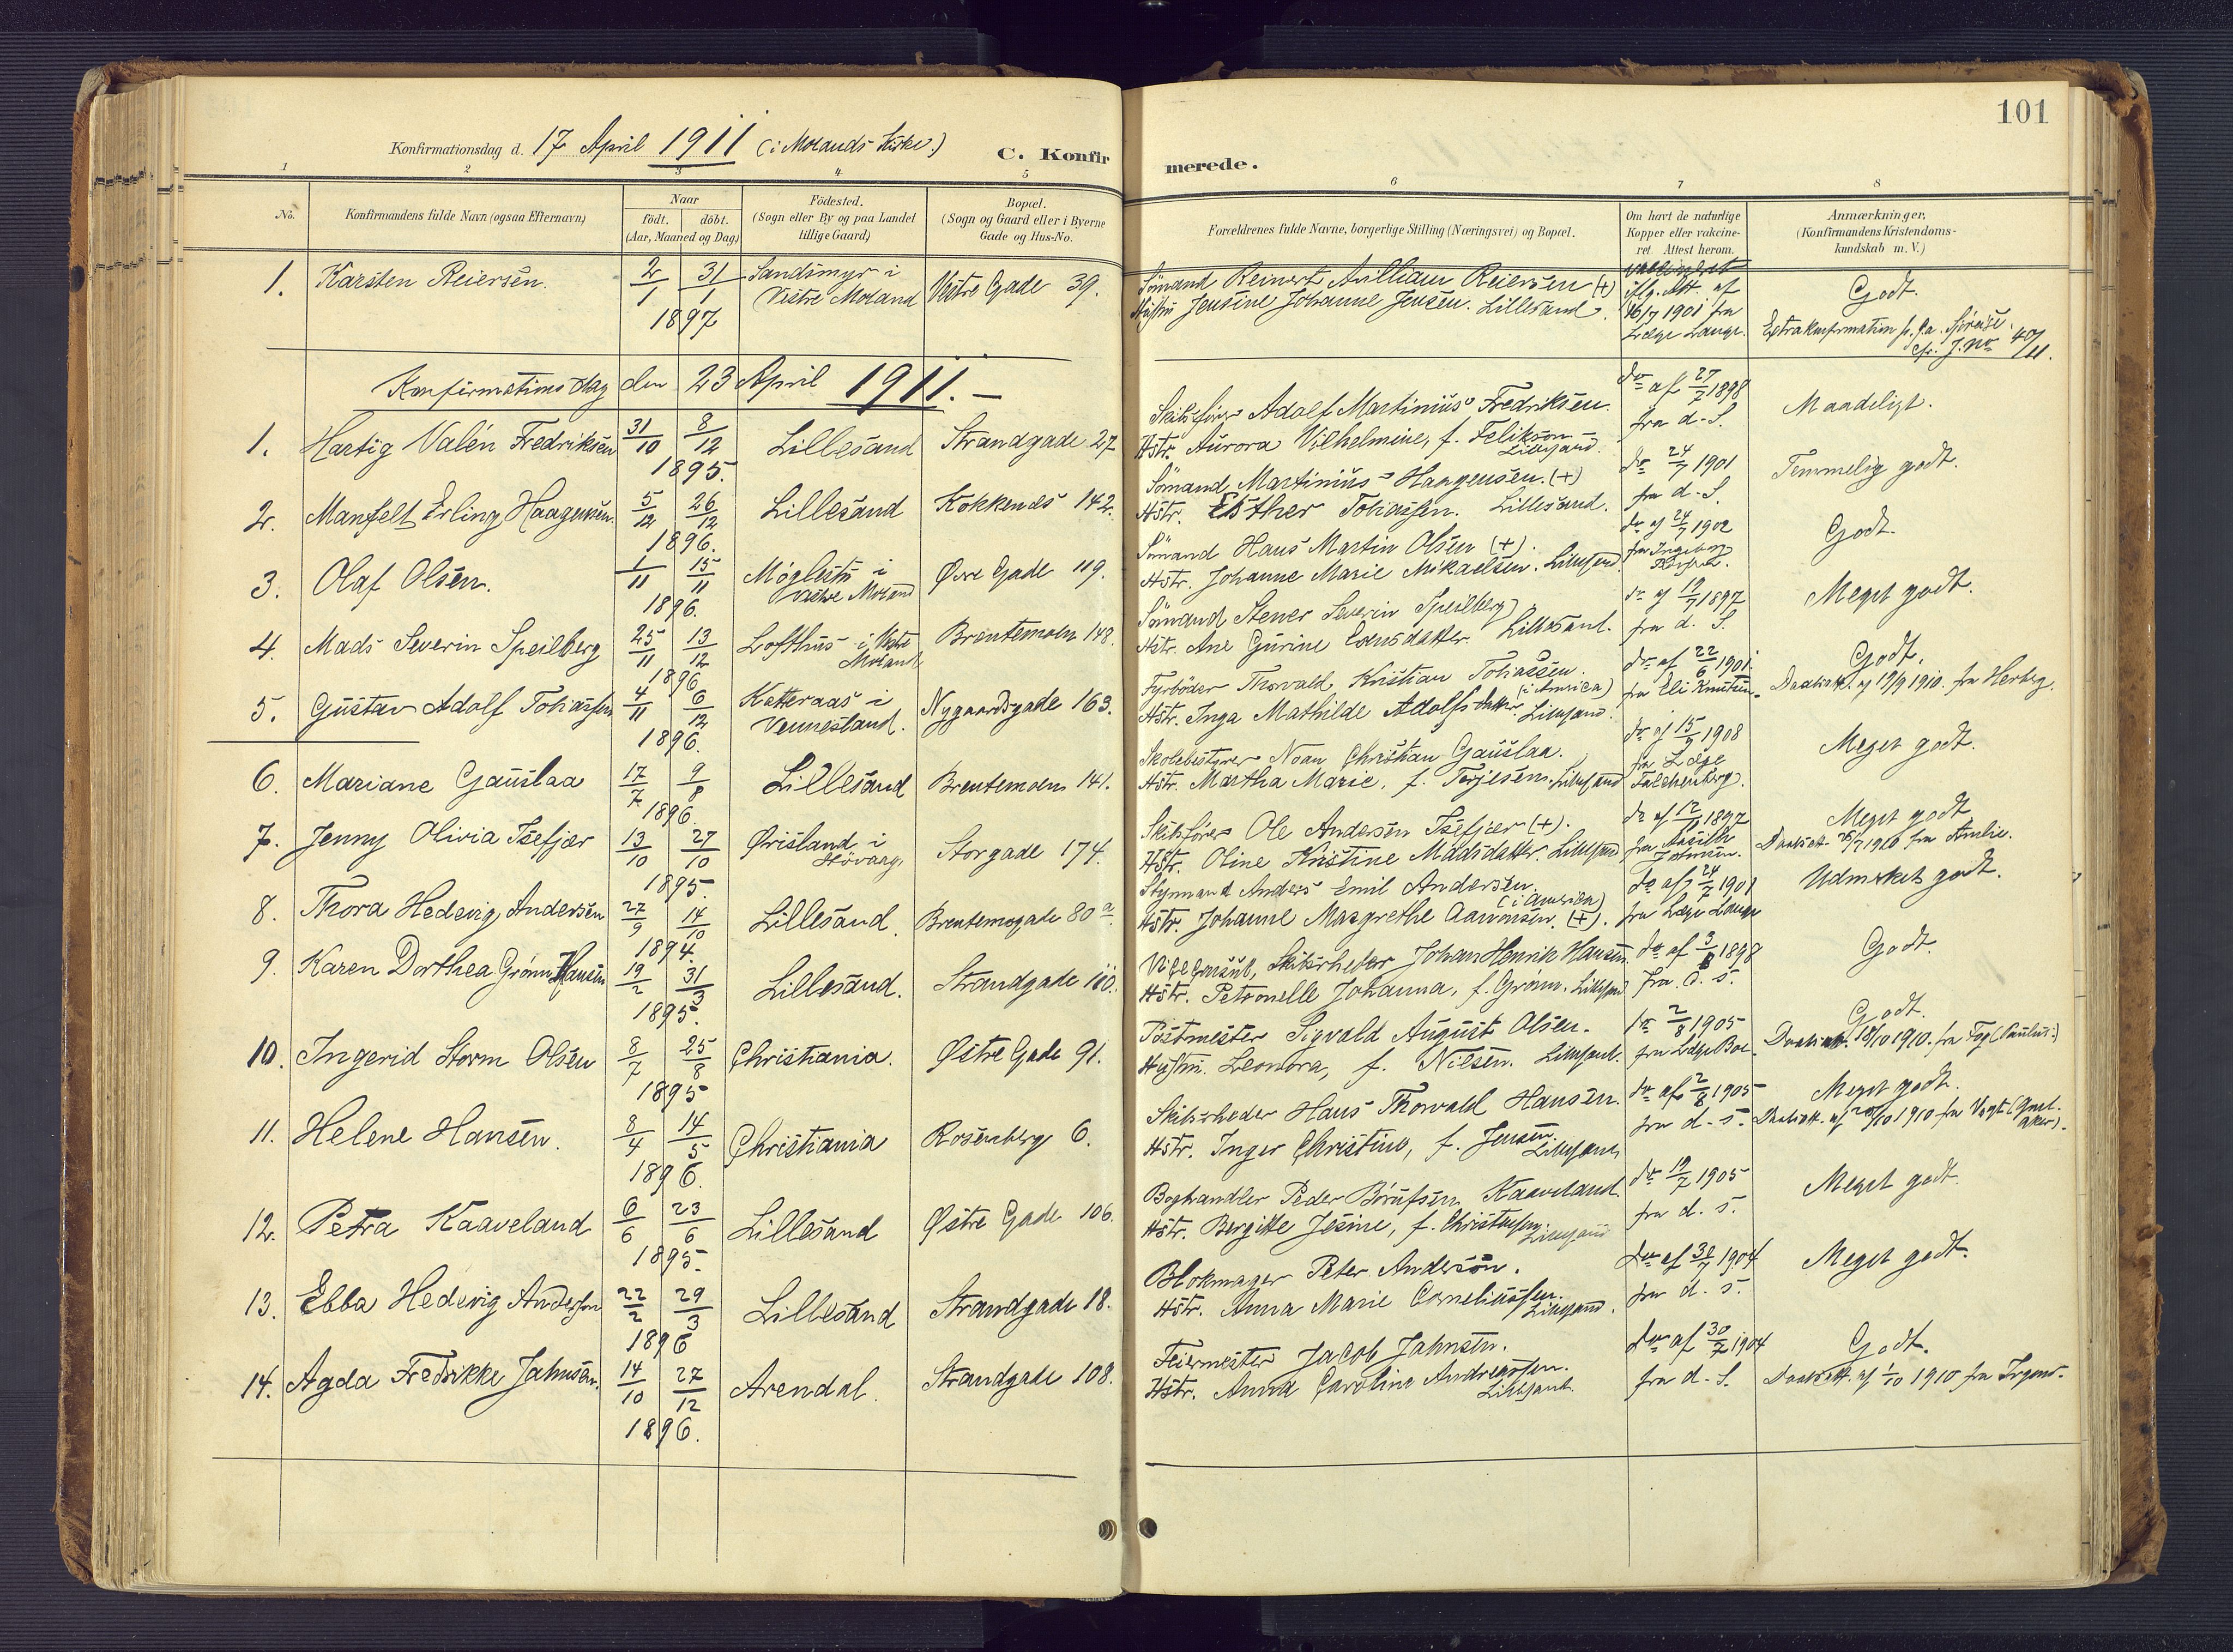 101
Konfirmationsdag d. 17 April 1911 (i Molands Kirke.)
C. Konfirmerede.
1 2 3 4 5 6 7 8
No. Konfirmandens fulde Navn (ogsaa Efternavn) Naar födt. döbt. (Aar, Maaned og Dag) Födested. (Sogn eller By og paa Landet tillige Gaard) Bopæl. (Sogn og Gaard eller i Byerne Gade og Hus-No. Forældrenes fulde Navne, borgerlige Stilling (Næringsvei) og Bopæl. Om havt de naturlige Kopper eller vakcineret. Attest herom. Anmærkninger. (Konfirmandens Kristendomskundskab m. V.)
1. Karsten Reiersen. 2/1 31/1 1897 Sandsmyr i Vestre Moland Vestre Gade 39.
Sömand Reinert William Reiersen (+)
Hustru Jensine Johanne Jensen. Lillesand.
vakcineret iflg. Att. af 16/7 1901 fra Læge Lange.
Godt.
Extrakonfirmation p. gr. a. Sjöreise. cfr. J. No 40/11.
Konfirmationsdag den 23 April 1911. —
1. Hartig Valén Fredriksen 31/10 8/12 1895. Lillesand Strandgade 27
Skibsförer Adolf Martinius Fredriksen.
Hstr. Aurora Vilhelmine, f. Felikson. Lillesand.
do af 27/7 1898 fra d. S.
Maadeligt.
2. Manfelt Erling Haagensen. 5/12 26/12 1896. Lillesand Kokkenæs 142.
Sömand Martinius Haagensen. (+)
Hstr. Esther Tobiassen. Lillesand.
do 24/7 1901 fra d. S.
Temmelig godt.
3. Olaf Olsen. 1/11 15/11 1896. Möglestu i Vestre Moland Övre Gade 119.
Sömand Hans Martin Olsen (+).
Hstr. Johanne Marie Mikaelsen. Lillesand.
do af 24/7 1902 fra Ingeborg
Godt.
4. Mads Severin Speilberg 25/11 13/12 1896 Lofthus i Vestre Moland Brentemoen 148.
Sömand Stener Severin Speilberg
Hstr. Ane Gurine Evensdatter Lillesand.
do af 19/7 1897 fra d. S.
Meget godt.
5. Gustav Adolf Tobiassen 4/11 6/12 1896. Katteraas i Vennesland. Nygaardsgade 163.
Fyrböder Thorvald Kristian Tobiassen. (i America)
Hstr. Inga Mathilde Adolfsdatter. Lillesand.
do af 22/6 1901. fra Eli Knutsen.
Godt.
Daabsatt. af 19/9 1910. fra Herberg.
6. Mariane Gauslaa 17/7 9/8 1896. Lillesand Brentemoen 141.
Skolebestyrer Noan Christian Gauslaa.
Hstr. Martha Marie, f. Terjesen. Lillesand
do af 15/7 1908 fra Læge Falchenberg.
Meget godt.
7. Jenny Olivia Isefjær 13/10 27/10 1895. Örisland i Hövaag. Storgade 174.
Skibsförer Ole Andersen Isefjær (+).
Hstr. Oline Kristine Madsdatter. Lillesand
Meget godt
8. Thora Hedevig Andersen 27/9 14/10 1894. Lillesand. Brentemogade 80a
Styrmand Anders Emil Andersen. (i America)
Hstr. Johanne Margrethe Aanonsen. (+).
do af 24/7 1901 fra Læge Lange
Udmerket godt.
9. Karen Dorthea Grönn Hansen 19/2 31/3 1895. Lillesand. Strandgade 110.
Vicekonsul, Skibsrheder Johan Henrik Hansen.
Hstr. Petronelle Johanna, f. Grönn. Lillesand
do af 3/8 1898 fra d. S.
Godt.
10. Ingerid Storm Olsen 8/7 25/8 1895 Christiania. Östre Gade 91.
Postmester Sigvald August Olsen.
Hustru. Leonora, f. Nielsen. Lillesand.
do 2/8 1905 fra Læge Boe.
Godt.
Daabsatt. 18/10 1910. fra Fog (Paulus.)
11. Helene Hansen. 8/4 14/5 1896. Christiania Rosenberg 6.
Skibsrheder Hans Thorvald Hansen.
Hstr. Inger Christine, f. Jensen. Lillesand
do af 2/8 1905 fra d. S.
Meget godt.
12. Petra Kaaveland 6/6 23/6 1895. Lillesand Östre Gade 106.
Boghandler Peder Börufsen Kaaveland.
Hstr. Bergitte Jesine, f. Christensen. Lillesand
do 19/7 1905 fra d. S.
Meget godt.
13. Ebba Hedevig Andersen 22/2 29/3 1896 Lillesand Strandgade 18.
Blokmager Peter Anderson.
Hstr. Anna Marie Corneliussen. Lillesand.
do af 30/7 1904 fra d. S.
Meget godt.
14. Agda Fredrikke Jahnsen. 14/10 27/12 1896. Arendal. Strandgade 108.
Feiermester Jacob Jahnsen.
Hstr. Anna Caroline Andreassen. Lillesand.
do af 30/7 1904 fra d. S.
Godt.
Daabsatt. af 1/10 1910 fra